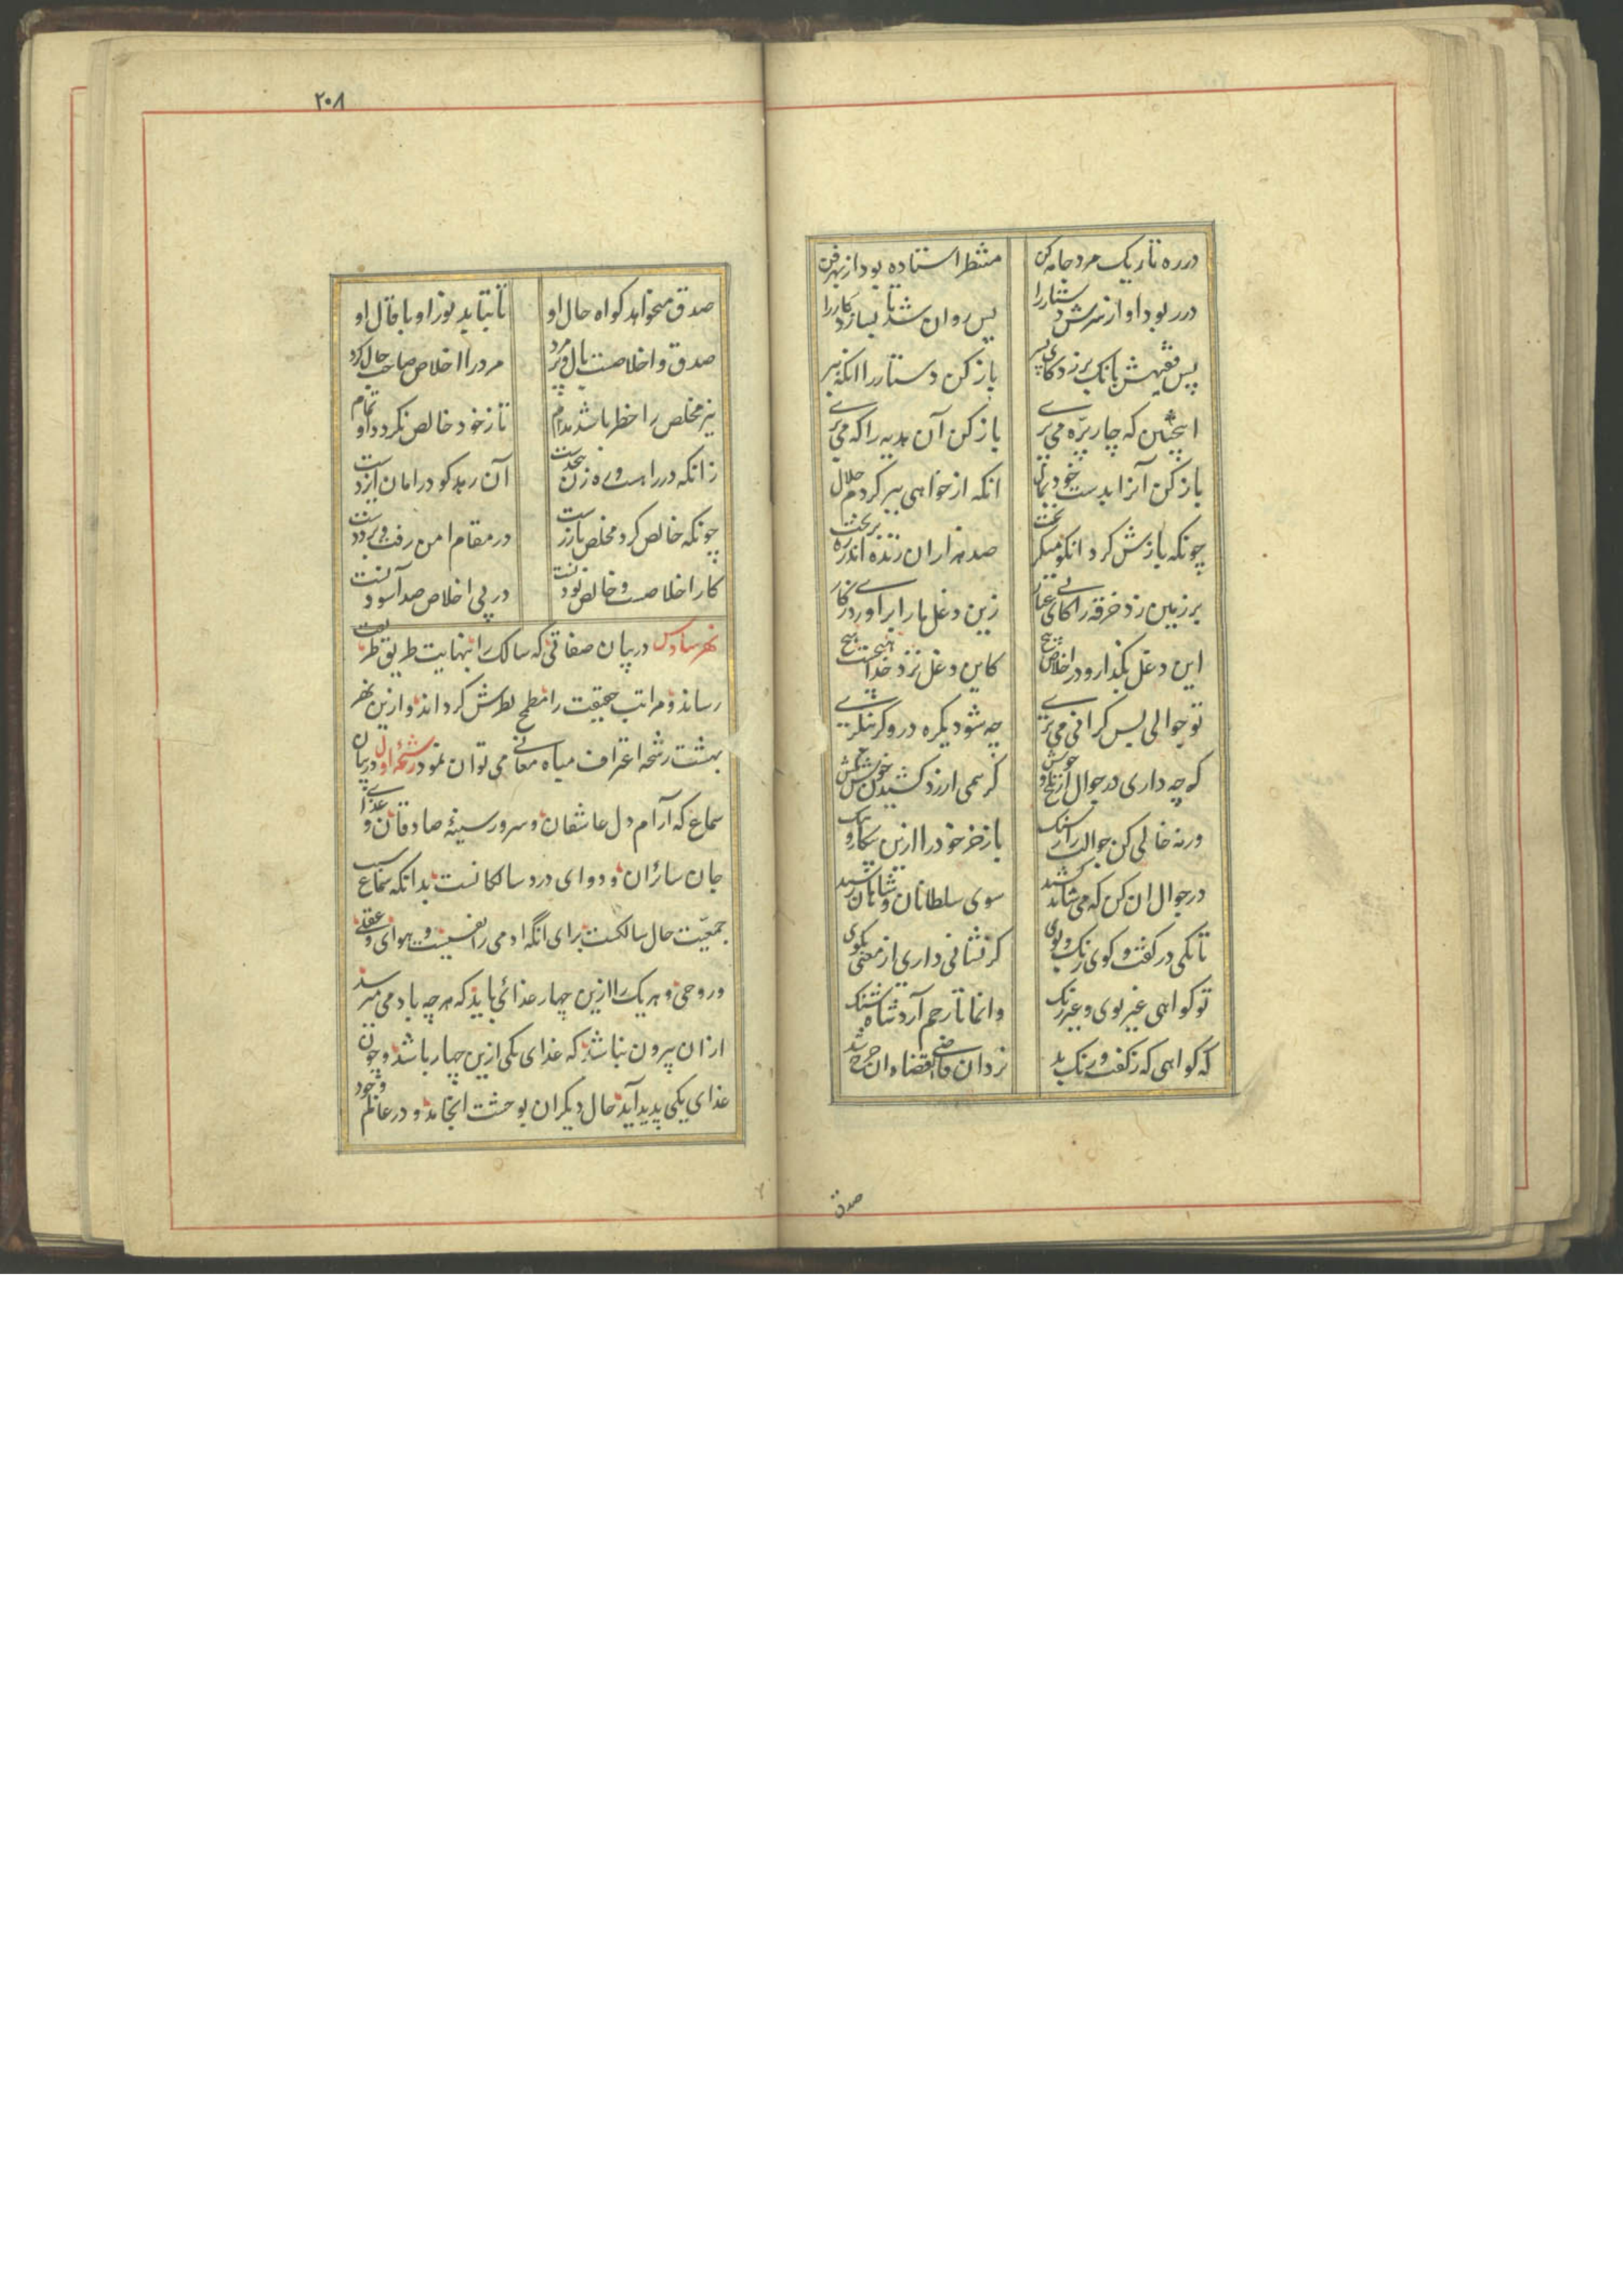 در ره تاریک مرد جامه کن
منتظر استاده بود از بهر فن
در ربود او از سرش دستار را
پس روان شد تا بسازد کار را
پس فقیهش بانک برزد کای پسر
باز کن دستار را انکه ببر
اینچنین که چار پرّه می پری
باز کن آن هدیه را که می بری
باز کن آنرا بدست خود بمال
انکه ار خواهی ببر کردم حلال
چونکه بازش کرد انکو میکریخت
صد هزاران ژنده اندر ره بریخت
بر زمین زد خرقه را کای بی عیار
زین دغل ما را براوردی ز کار
این دغل بکذار و در اخلاص پیچ
کاین دغل نزد خدا هیچست هیچ
تو جوالی بس کرانی می بری
چه شود یکره درو کر بنگری
که چه داری در جوال از تلخ و خوش
کر همی ارزد کشیدن خوش بکش
ورنه خالی کن جوالت را ز سنک
باز خر خود را ازین بیکار و ننک
در جوال ان کن که می شاید کشید
سوی سلطانان و شاهان رشید
تا بکی در کفت و کوی رنک و بوی
کر نشانی داری از معنی بکوی
تو کواهی غیر بوی و غیر رنک
وانما تا رحم آرد شاه شنک
که کواهی که ز کفت و رنک بد
نزد ان قاضی القضاه ان جرح شد
صدق
۲۰۸
صدق میخواهد کواه حال او
تا بتابد نور او با قال او
صدق و اخلاصت بال و پر مرد
مرد را اخلاص صاحب حال کرد
نیز مخلص را خطر باشد مدام
تا ز خود خالص نکردد او تمام
زانکه در راهست و ره زن بیحدست
آن رهد کو در امان ایزدست
چونکه خالص کرد مخلص باز رست
در مقام امن رفت و برد دست
کار اخلاصست و خالص بودنست
در پی اخلاص صد آسودنست
نهر سادس در بیان صفاتی که سالک را بنهایت طریق طریقت
رساند و مراتب حقیقت را مطمح نظرش کرداند و ازین نهر
بهشت رشحه اغتراف میاه معانی می توان نمود رشحه اول در بیان
سماع که آرام دل عاشقان و سرور سینهٔ صادقان و غذای
جان سائران و دوای درد سالکانست بدانکه سماع سبب
جمعیّت حال سالکست برای انگه ادمی را نفسیست و هوای و عقلی
و روحی و هریک را ازین چهار غذائی باید که هر چه بادمی میرسد
ازان بیرون نباشد که غذای یکی ازین چهار باشد و چون
غذای یکی پدید آید حال دیکران بوحشت انجامد و در عالم وجود